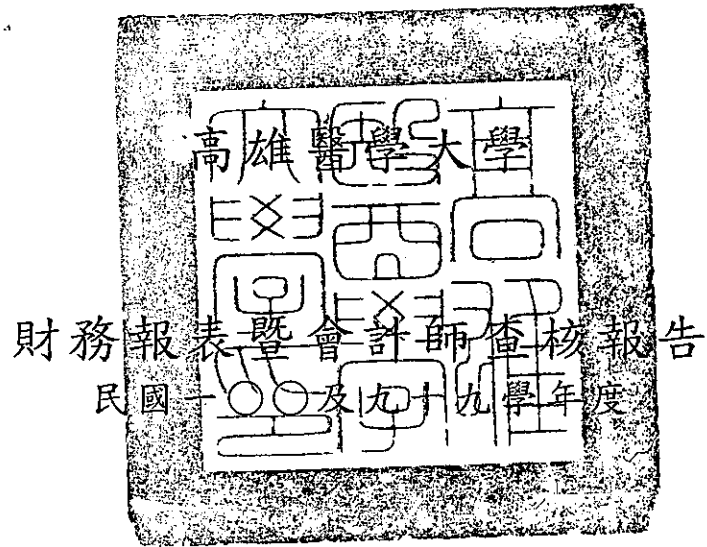 高雄醫學大學
財務報表暨會計師查核報告
民國一○○及九十九學年度